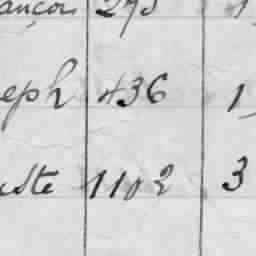 ançois 295 1
eph 436 1
uste 1102 3